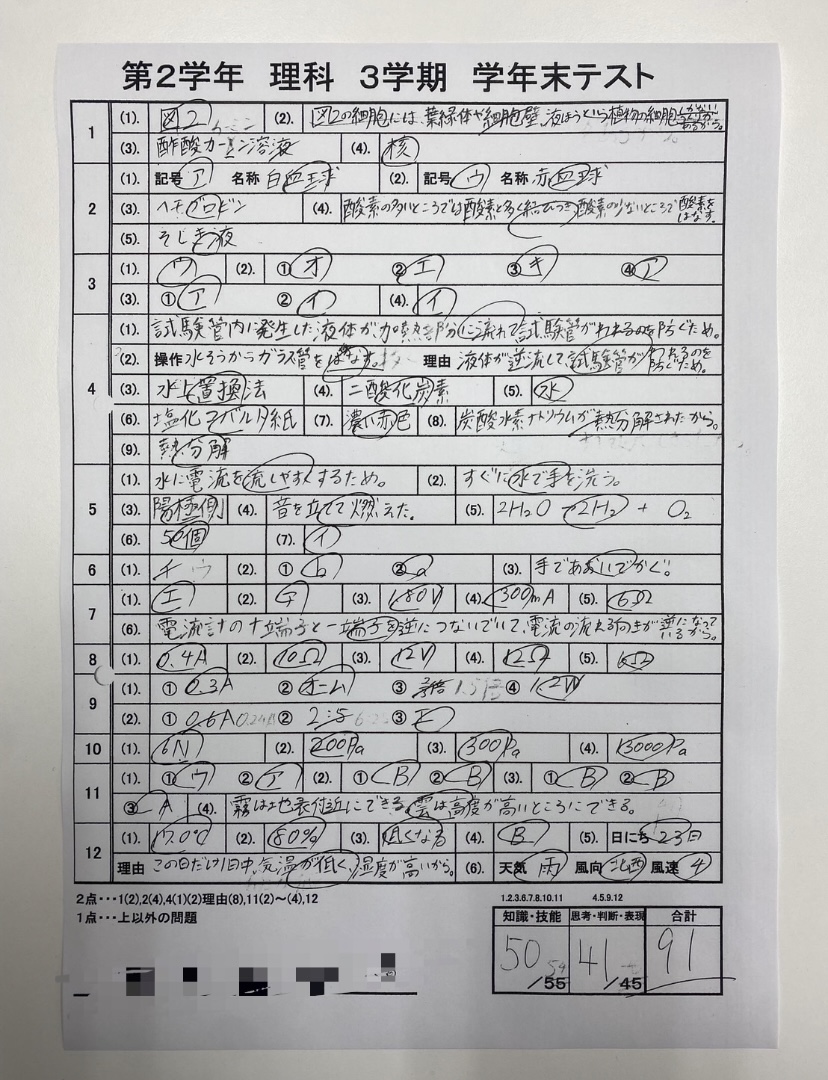 第2学年 理科 3学期 学年末テスト
1 (1). 図2 (2). 図2の細胞には、葉緑体や細胞壁、液ほうという植物の細胞にしかないつくりがあるから。
(3). 酢酸カーミン溶液 (4). 核
2 (1). 記号 ア 名称 白血球 (2). 記号 ウ 名称 赤血球
(3). ヘモグロビン (4). 酸素の多いところでは酸素と多く結びつき酸素の少ないところで酸素をはなす。
(5). そしき液
3 (1). ウ (2). ① オ ② エ ③ キ ④ ア
(3). ① ア ② イ (4). イ
4 (1). 試験管内に発生した液体が、加熱部分に流れて試験管がわれるのを防ぐため。
(2). 操作 水そうからガラス管をはなす。 理由 液体が逆流して、試験管がわれるのを防ぐため。
(3). 水上置換法 (4). 二酸化炭素 (5). 水
(6). 塩化コバルタ紙 (7). 濃い赤色 (8). 炭酸水素ナトリウムが熱分解されたから。
(9). 熱分解
5 (1). 水に電流を流しやすくするため。 (2). すぐに水で手を洗う。
(3). 陽極側 (4). 音を立てて燃えた。 (5). 2H₂O → 2H₂ + O₂
(6). 50個 (7). イ
6 (1). (2). ① b ② a (3). 手であおいでかぐ。
7 (1). エ (2). (3). 1.80V (4). 300mA (5). 6Ω
(6). 電流計の+端子と-端子を逆につないでいて、電流の流れる向きが逆になっているから。
8 (1). 0.4A (2). 10Ω (3). 12V (4). 12Ω (5). 6Ω
9 (1). ① 0.3A ② オーム ③ ④ 1.2W
(2). ① 0.6A ② 2:5 ③ エ
10 (1). 6N (2). 200Pa (3). 300Pa (4). 13000Pa
11 (1). ① ウ ② ア (2). ① B ② B (3). ① B ② B
③ A (4). 霧は地表付近にできる。雲は高度が高いところにできる。
12 (1). 17.0℃ (2). 80% (3). 低くなる (4). B (5). 日にち 23日
理由 この日だけ1日中、気温が低く、湿度が高いから。 (6). 天気 雨 風向 北西 風速 4
2点・・・1(2),2(4),4(1)(2)理由(8),11(2)～(4),12
1点・・・上以外の問題
1.2.3.6.7.8.10.11 4.5.9.12
知識・技能 思考・判断・表現 合計
50/55 41/45 91